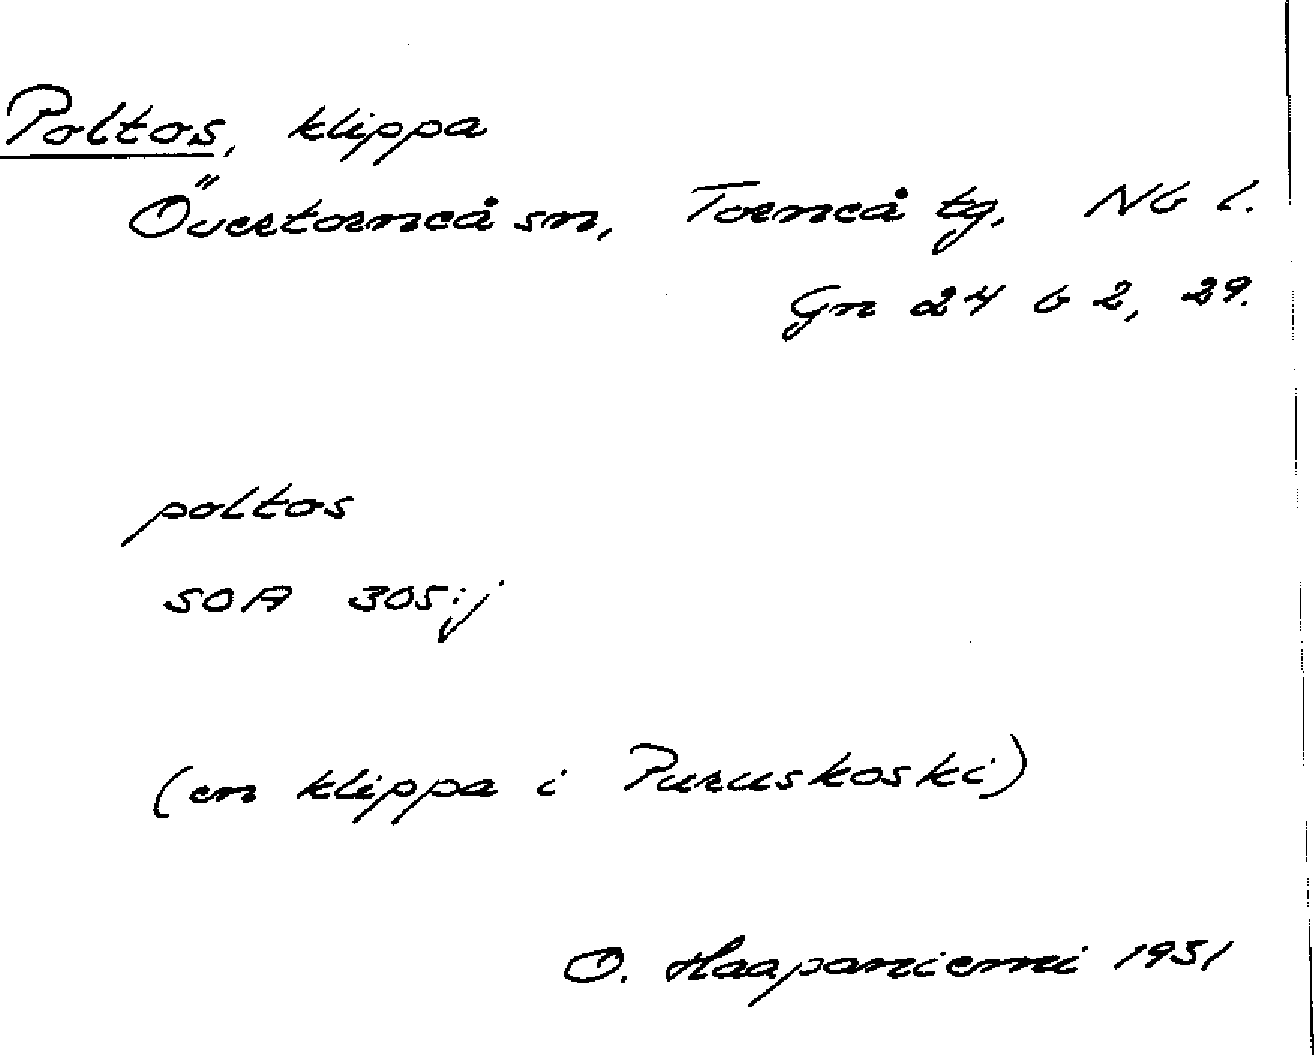 Poltos, klippa
Övertorneå sn, Torneå tg, Nb l.
Gn 24 b 2, 29.
poltos
SOA 305:j
(en klippa i Puruskoski)
O. Haapaniemi 1931